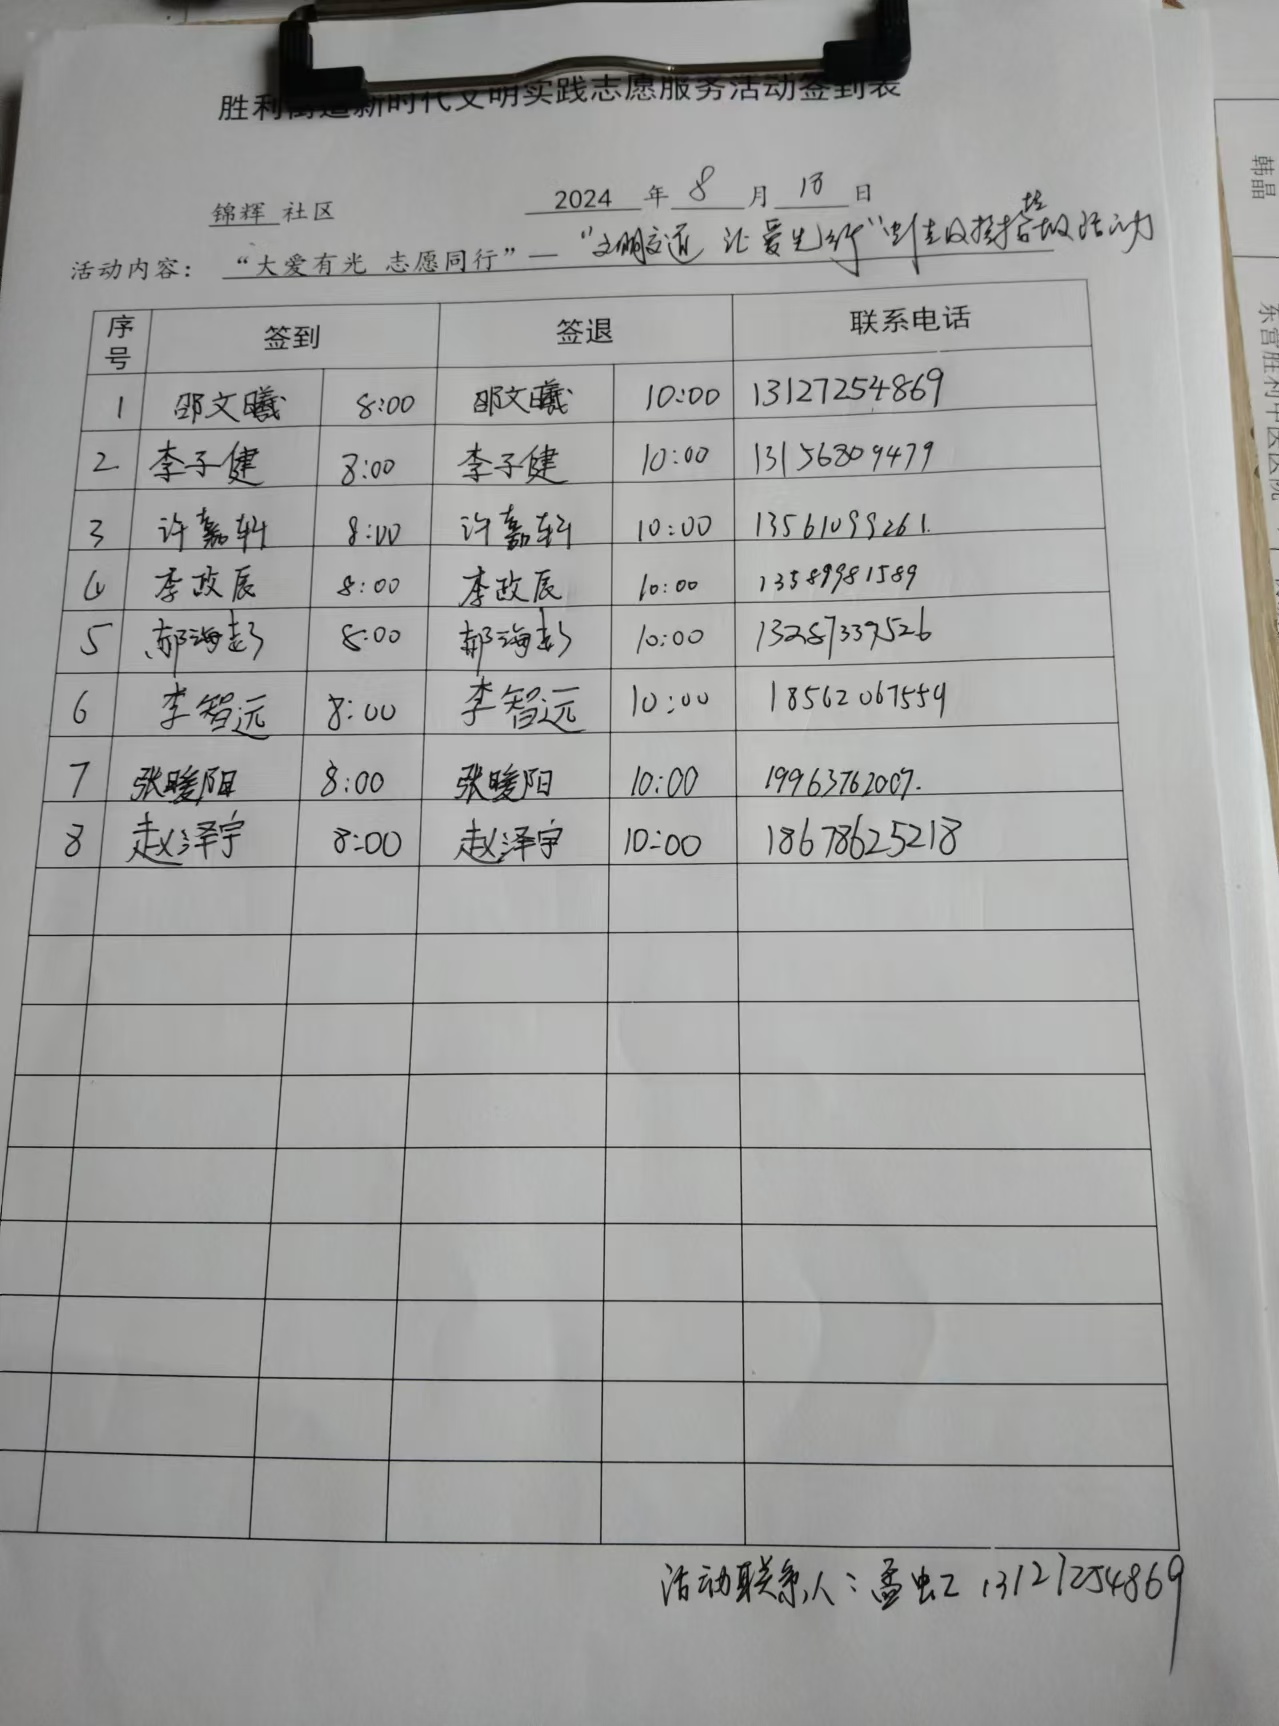 胜利街道新时代文明实践志愿服务活动签到表
锦辉 社区 2024 年 8 月 18 日
活动内容： “大爱有光 志愿同行”— “文明交通 让爱先行” 活动
序号 签到 签退 联系电话
1 邵文曦 8:00 邵文曦 10:00 13127254869
2 李子健 8:00 李子健 10:00 13156809479
3 许嘉轩 8:00 许嘉轩 10:00 13561099261.
4 李政辰 8:00 李政辰 10:00 13589981589
5 郝海彭 8:00 郝海彭 10:00 13287339526
6 李智远 8:00 李智远 10:00 18562067559
7 张暖阳 8:00 张暖阳 10:00 19963762007.
8 赵泽宇 8:00 赵泽宇 10:00 18678625218
活动联系人：孟虹 13127254869
韩晶
东营胜利中医医院